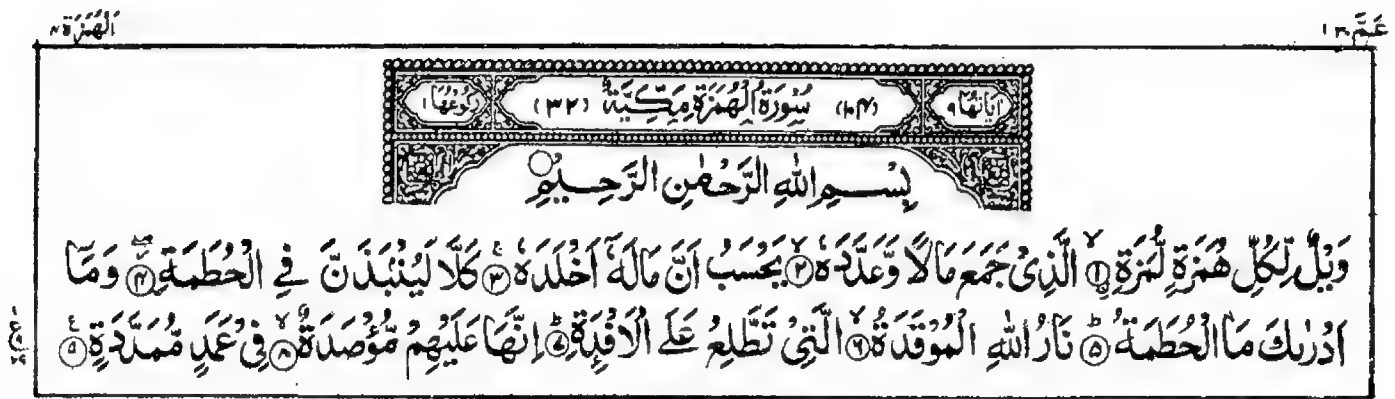 عَمَّ ٣٠
اَلْهُمَزَة ١٠٤
اٰيَاتُهَا ٩
(١٠٤) سُوْرَةُ الْهُمَزَةِ مَكِّيَّةٌ (٣٢)
رُكُوْعُهَا ١
بِسْمِ اللّٰهِ الرَّحْمٰنِ الرَّحِيْمِ
وَيْلٌ لِّكُلِّ هُمَزَةٍ لُّمَزَةِ ۙ﴿۱﴾ الَّذِیْ جَمَعَ مَالًا وَّعَدَّدَهٗ ۙ﴿۲﴾ یَحْسَبُ اَنَّ مَالَهٗۤ اَخْلَدَهٗ ۚ﴿۳﴾ كَلَّا لَیُنْۢبَذَنَّ فِی الْحُطَمَةِ ۖ﴿۴﴾ وَمَاۤ
اَدْرٰىكَ مَا الْحُطَمَةُ ؕ﴿۵﴾ نَارُ اللّٰهِ الْمُوْقَدَةُ ۙ﴿۶﴾ الَّتِیْ تَطَّلِعُ عَلَی الْاَفْـِٕدَةِ ؕ﴿۷﴾ اِنَّهَا عَلَیْهِمْ مُّؤْصَدَةٌ ۙ﴿۸﴾ فِیْ عَمَدٍ مُّمَدَّدَةٍ ۧ﴿۹﴾